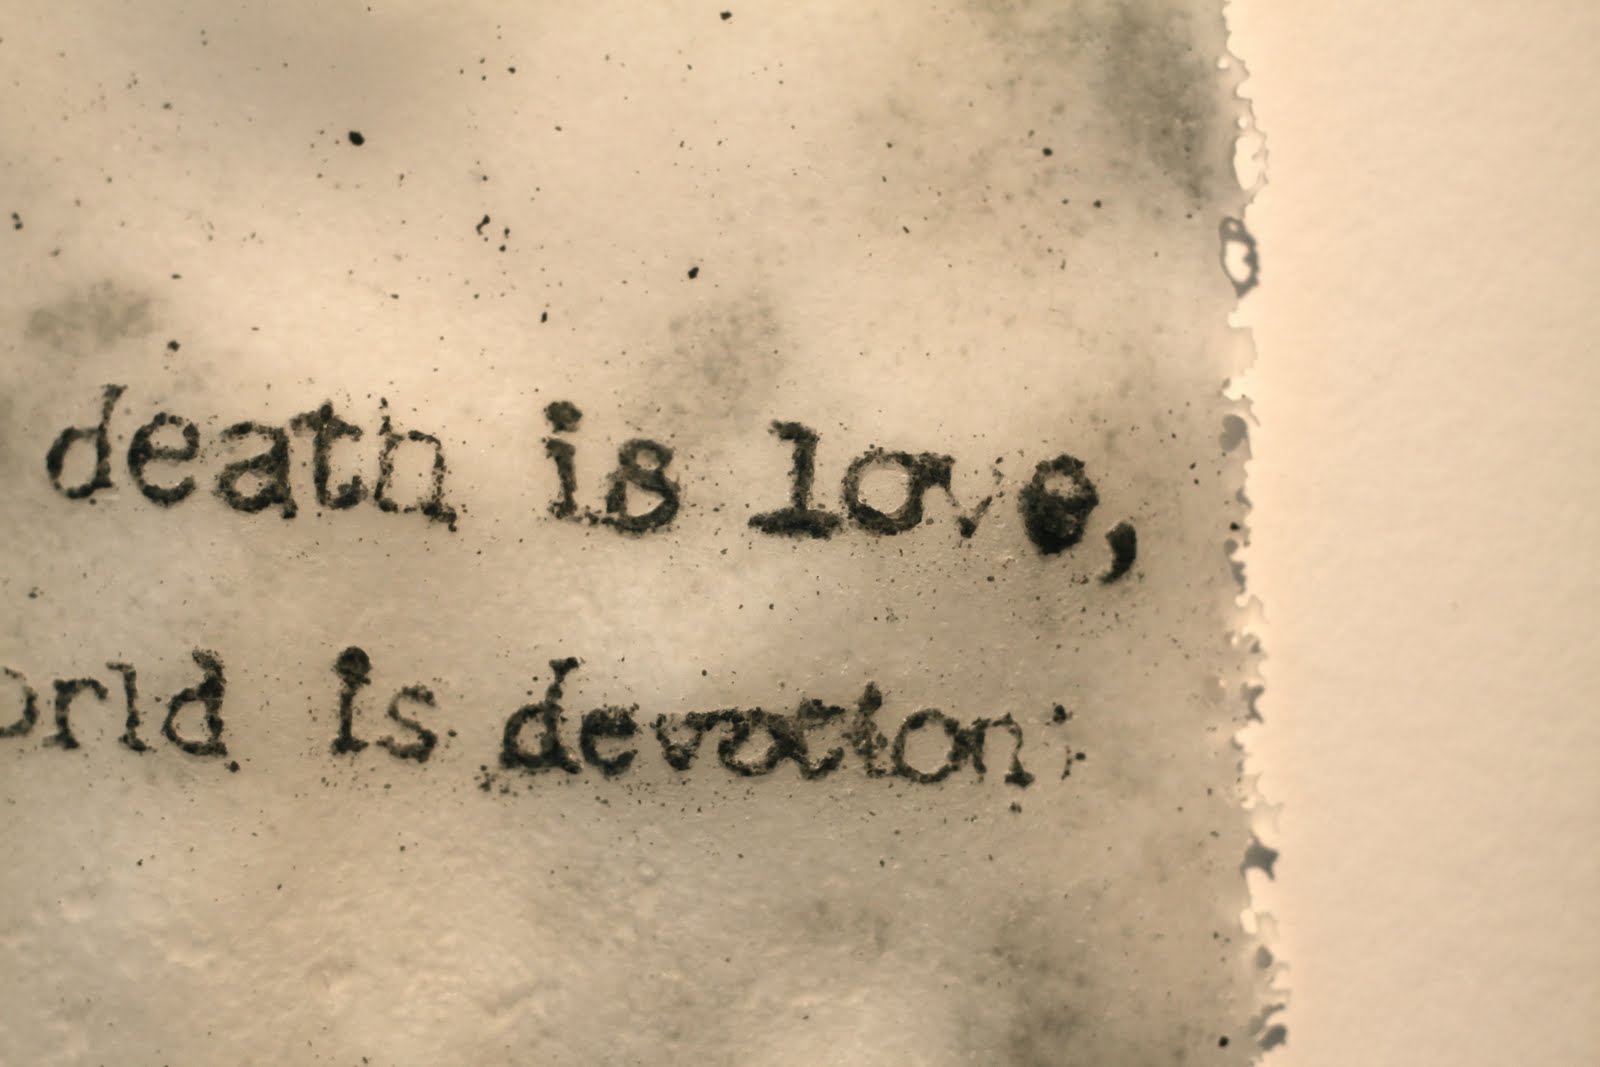 death is love,
orld is devotion;